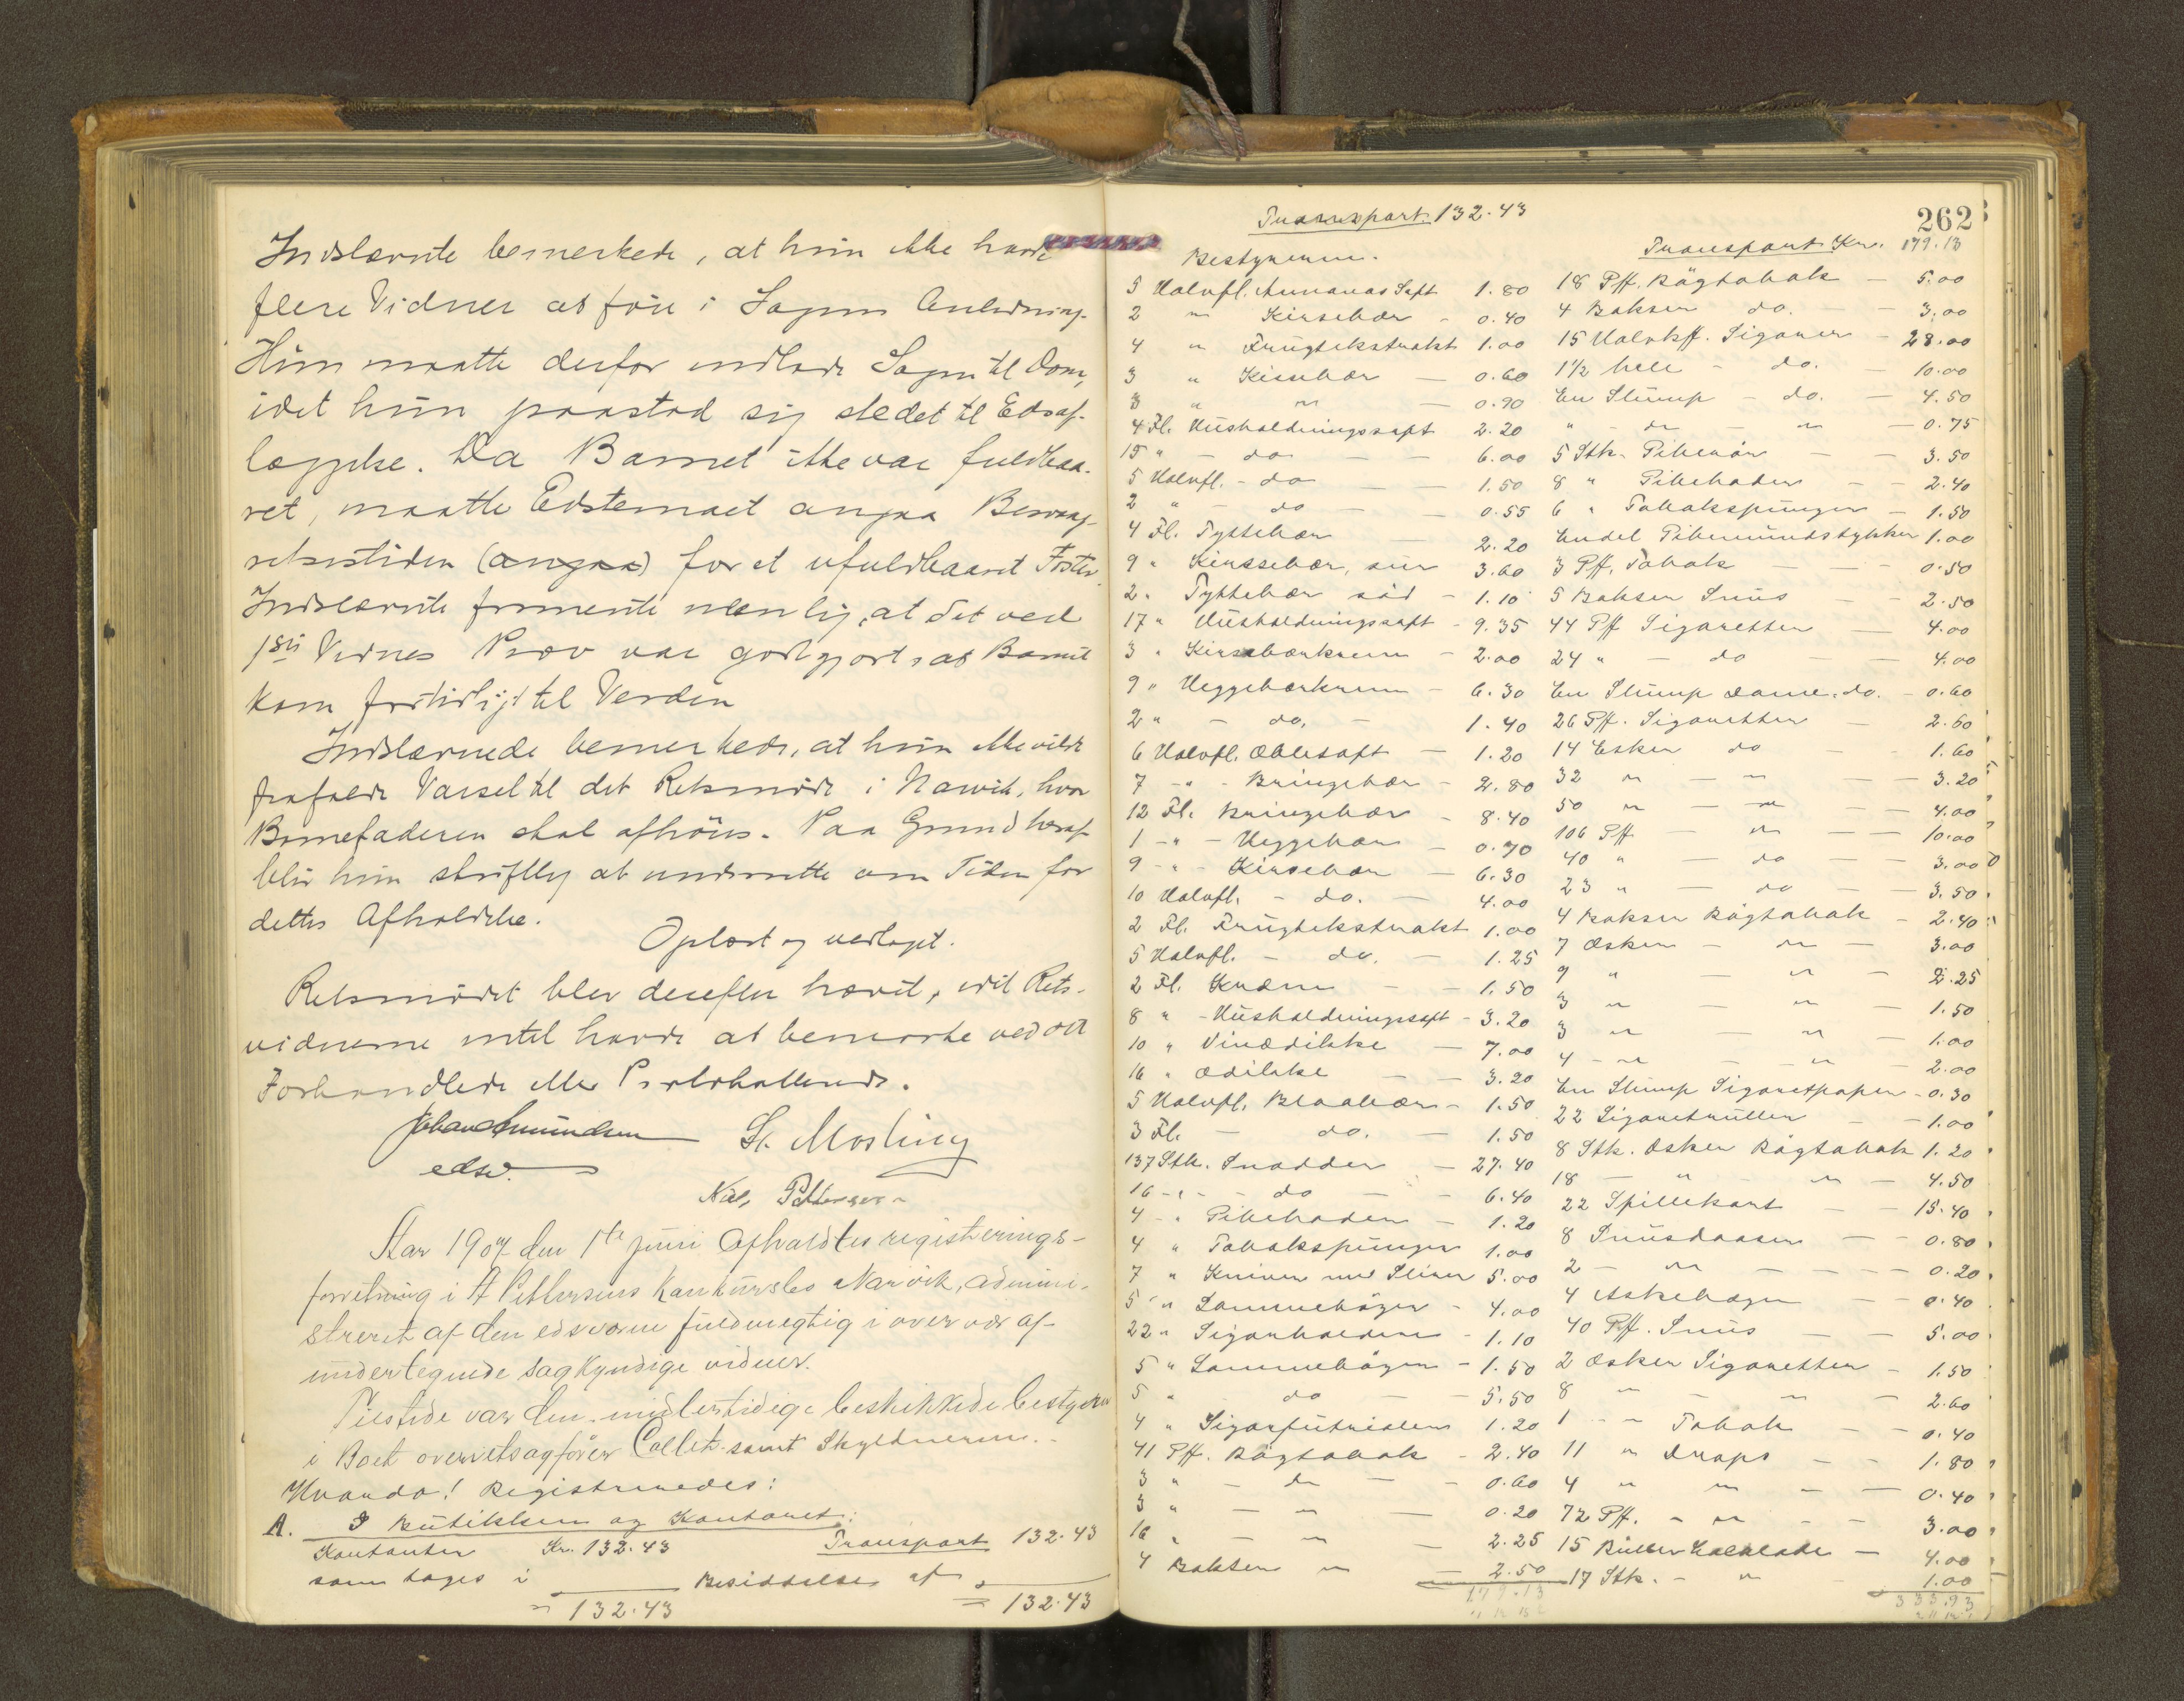 Indstævnte bemerkede, at hun ikke havde
flere Vidner at føre i Sagens Anledning.
Hun maatte derfor indlade Sagen til Dom,
idet hun paastod sig stedet til Edsaf-
læggelse. Da Barnet ikke var fuldbaa-
ret, maatte Edstemaet angaa Besvang-
relsestiden (angaa) for et ufuldbaaret Foster.
Indstævnte formente nemlig, at det ved
1ste Vidnes Prov var godtgjort, at Barnet
kom fortidligt til Verden
Indstævnede bemerkede, at hun ikke vilde
frafalde Varsel til det Retsmøde i Narvik, hvor
Barnefaderen skal afhøres. Paa Grund heraf
blir hun skriftlig at underrette om Tiden for
dettes Afholdelse.
Oplæst og vedtaget.
Retsmødet blev derefter hævet, idet Rets-
vidnerne intet havde at bemærke ved det
Forhandlede eller Protokollerede.
Johan Amundsen St. Mosling
edsv.
Nils Pettersen
Aar 1907 den 1te juni Afholdtes registrerings-
forretning i A Pettersens konkursbo Narvik, admini-
streret af den edsvorne fuldmegtig i overvær af
undertegnede sagkyndige vidner.
Tilstede var den midlertidige beskikkede bestyrer
i Boet overretsagfører Collet samt Skyldneren.
Hvorda! Registreredes:
A. I Butikken og Kontoret:
Kontanter Kr. 132.43 Transport 132.43
som toges i Besiddelse af
= 132.43 = 132.43
262
Transport 132.43
Bestyreren.
5 Halvfl. Annanas Saft 1.80
2 " Kirsebær - 0.40
4 " Frugtekstrakt 1.00
3 " Kirsebær - 0.60
3 " " - 0.90
4 Fl. Husholdningssaft 2.20
15 " - do - - 6.00
5 Halvfl. - do - - 1.50
2 " - do - 0.55
4 Fl. Tyttebær - 2.20
9 " Kirssebær, sur 3.60
2 " Tyttebær sød - 1.10
17 " Husholdningssaft - 9.35
3 " Kirsebærkrem - 2.00
9 " Heggebærkrem - 6.30
2 " - do. - 1.40
6 Halvfl. Æblesaft - 1.20
7 - " - Bringebær - 2.80
12 Fl. Bringebær - 8.40
1 - " - Heggebær - 0.70
9 - " - Kirsebær - 6.30
10 Halvfl. - do. - 4.00
2 Fl. Frugtekstrakt 1.00
5 Halvfl. - do. - 1.25
2 Fl. Kræm - - 1.50
8 " - Husholdningssaft - 3.20
10 " Vinædikke - 7.00
16 " Ædikke - - 3.20
5 Halvfl. Blaabær - 1.50
3 Fl. - do. - 1.50
137 Stk. Snadder - 27.40
16 - " - do - - 6.40
4 - " Pibehoder - 1.20
4 " Tobakspunger 1.00
7 " Kniver med Slirer 5.00
5 " Lommebøger - 4.00
22 " Sigarholdere - 1.10
5 " Lommebøger - 1.50
5 " do - - 5.50
4 " Sigarfutrialer 1.20
41 Pff. Røgtobak - 2.40
3 " - do - - 0.60
3 " - " - 0.20
16 " - " - 2.25
4 Bokser " - 2.50
179.13
Transport Kr. 179.13
18 Pff. Røgtobak - 5.00
4 Bokser do. - 3.00
15 Halvkss. Sigarer - 28.00
1½ hele - do. - 10.00
En Slump - do. - 4.50
" - do - " - 0.75
5 Stk. Piberør - - 3.50
8 " Pibehoder - - 2.40
6 " Tobakspunger - 1.50
Endel Pibemundstykker 1.00
3 Pff. Tobak - - 0.50
5 Bokser Snus - - 2.50
44 Pff Sigaretter - 4.00
24 " - do - - 4.00
En Slump Dame. do. - 0.60
26 Pff. Sigaretter - 2.60
14 Esker do - - 1.60
32 " - " - - 3.20
50 " - " - - 4.00
106 Pff - " - - 10.00
40 " - do - - 3.00
23 " - do - - 3.50
4 Bokser Røgtobak - 2.40
7 Æsker - " - 3.00
9 " - " - 2.25
3 " - " - 1.50
3 " " - 1.00
4 - " - " - 2.00
En Slump Sigaretpaper - 0.30
22 Sigaretruller - - 1.00
8 Stk. Æsker Røgtobak 1.20
18 - " - " - 4.50
22 Spillekort - - 13.40
8 Snusdaaser - - 0.80
2 - " - - - 0.20
4 Askebæger - - 0.40
40 Pff. Snus - - 5.00
2 Æsker Sigaretter - 1.50
8 " - " - 2.60
1 - " Tobak - 0.40
11 " Drops - - 1.80
4 " " - - 0.40
72 Pff. - " - - 3.00
15 Ruller - 4.00
17 Stk. - " - 1.00
333.93